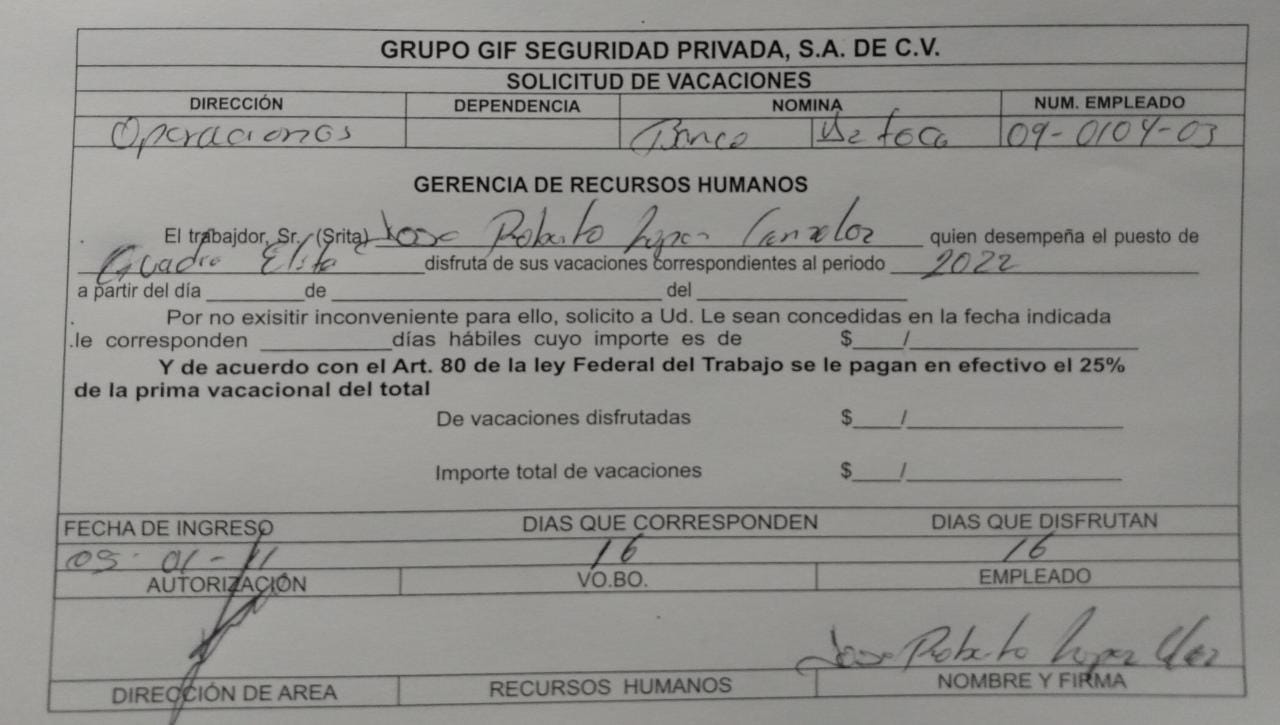 GRUPO GIF SEGURIDAD PRIVADA, S.A. DE C.V.
SOLICITUD DE VACACIONES
DIRECCIÓN DEPENDENCIA NOMINA NUM. EMPLEADO
Operaciones Banco 09-0104-03
GERENCIA DE RECURSOS HUMANOS
El trabajdor, Sr. (Srita) Jose Roberto Lopez quien desempeña el puesto de
disfruta de sus vacaciones correspondientes al periodo 2022
a partir del día ________de ________ del ________
Por no exisitir inconveniente para ello, solicito a Ud. Le sean concedidas en la fecha indicada
.le corresponden ________días hábiles cuyo importe es de $____/________
Y de acuerdo con el Art. 80 de la ley Federal del Trabajo se le pagan en efectivo el 25%
de la prima vacacional del total
De vacaciones disfrutadas $____/________
Importe total de vacaciones $____/________
FECHA DE INGRESO DIAS QUE CORRESPONDEN DIAS QUE DISFRUTAN
16 16
AUTORIZACIÓN VO.BO. EMPLEADO
Jose Roberto Lopez
DIRECCIÓN DE AREA RECURSOS HUMANOS NOMBRE Y FIRMA